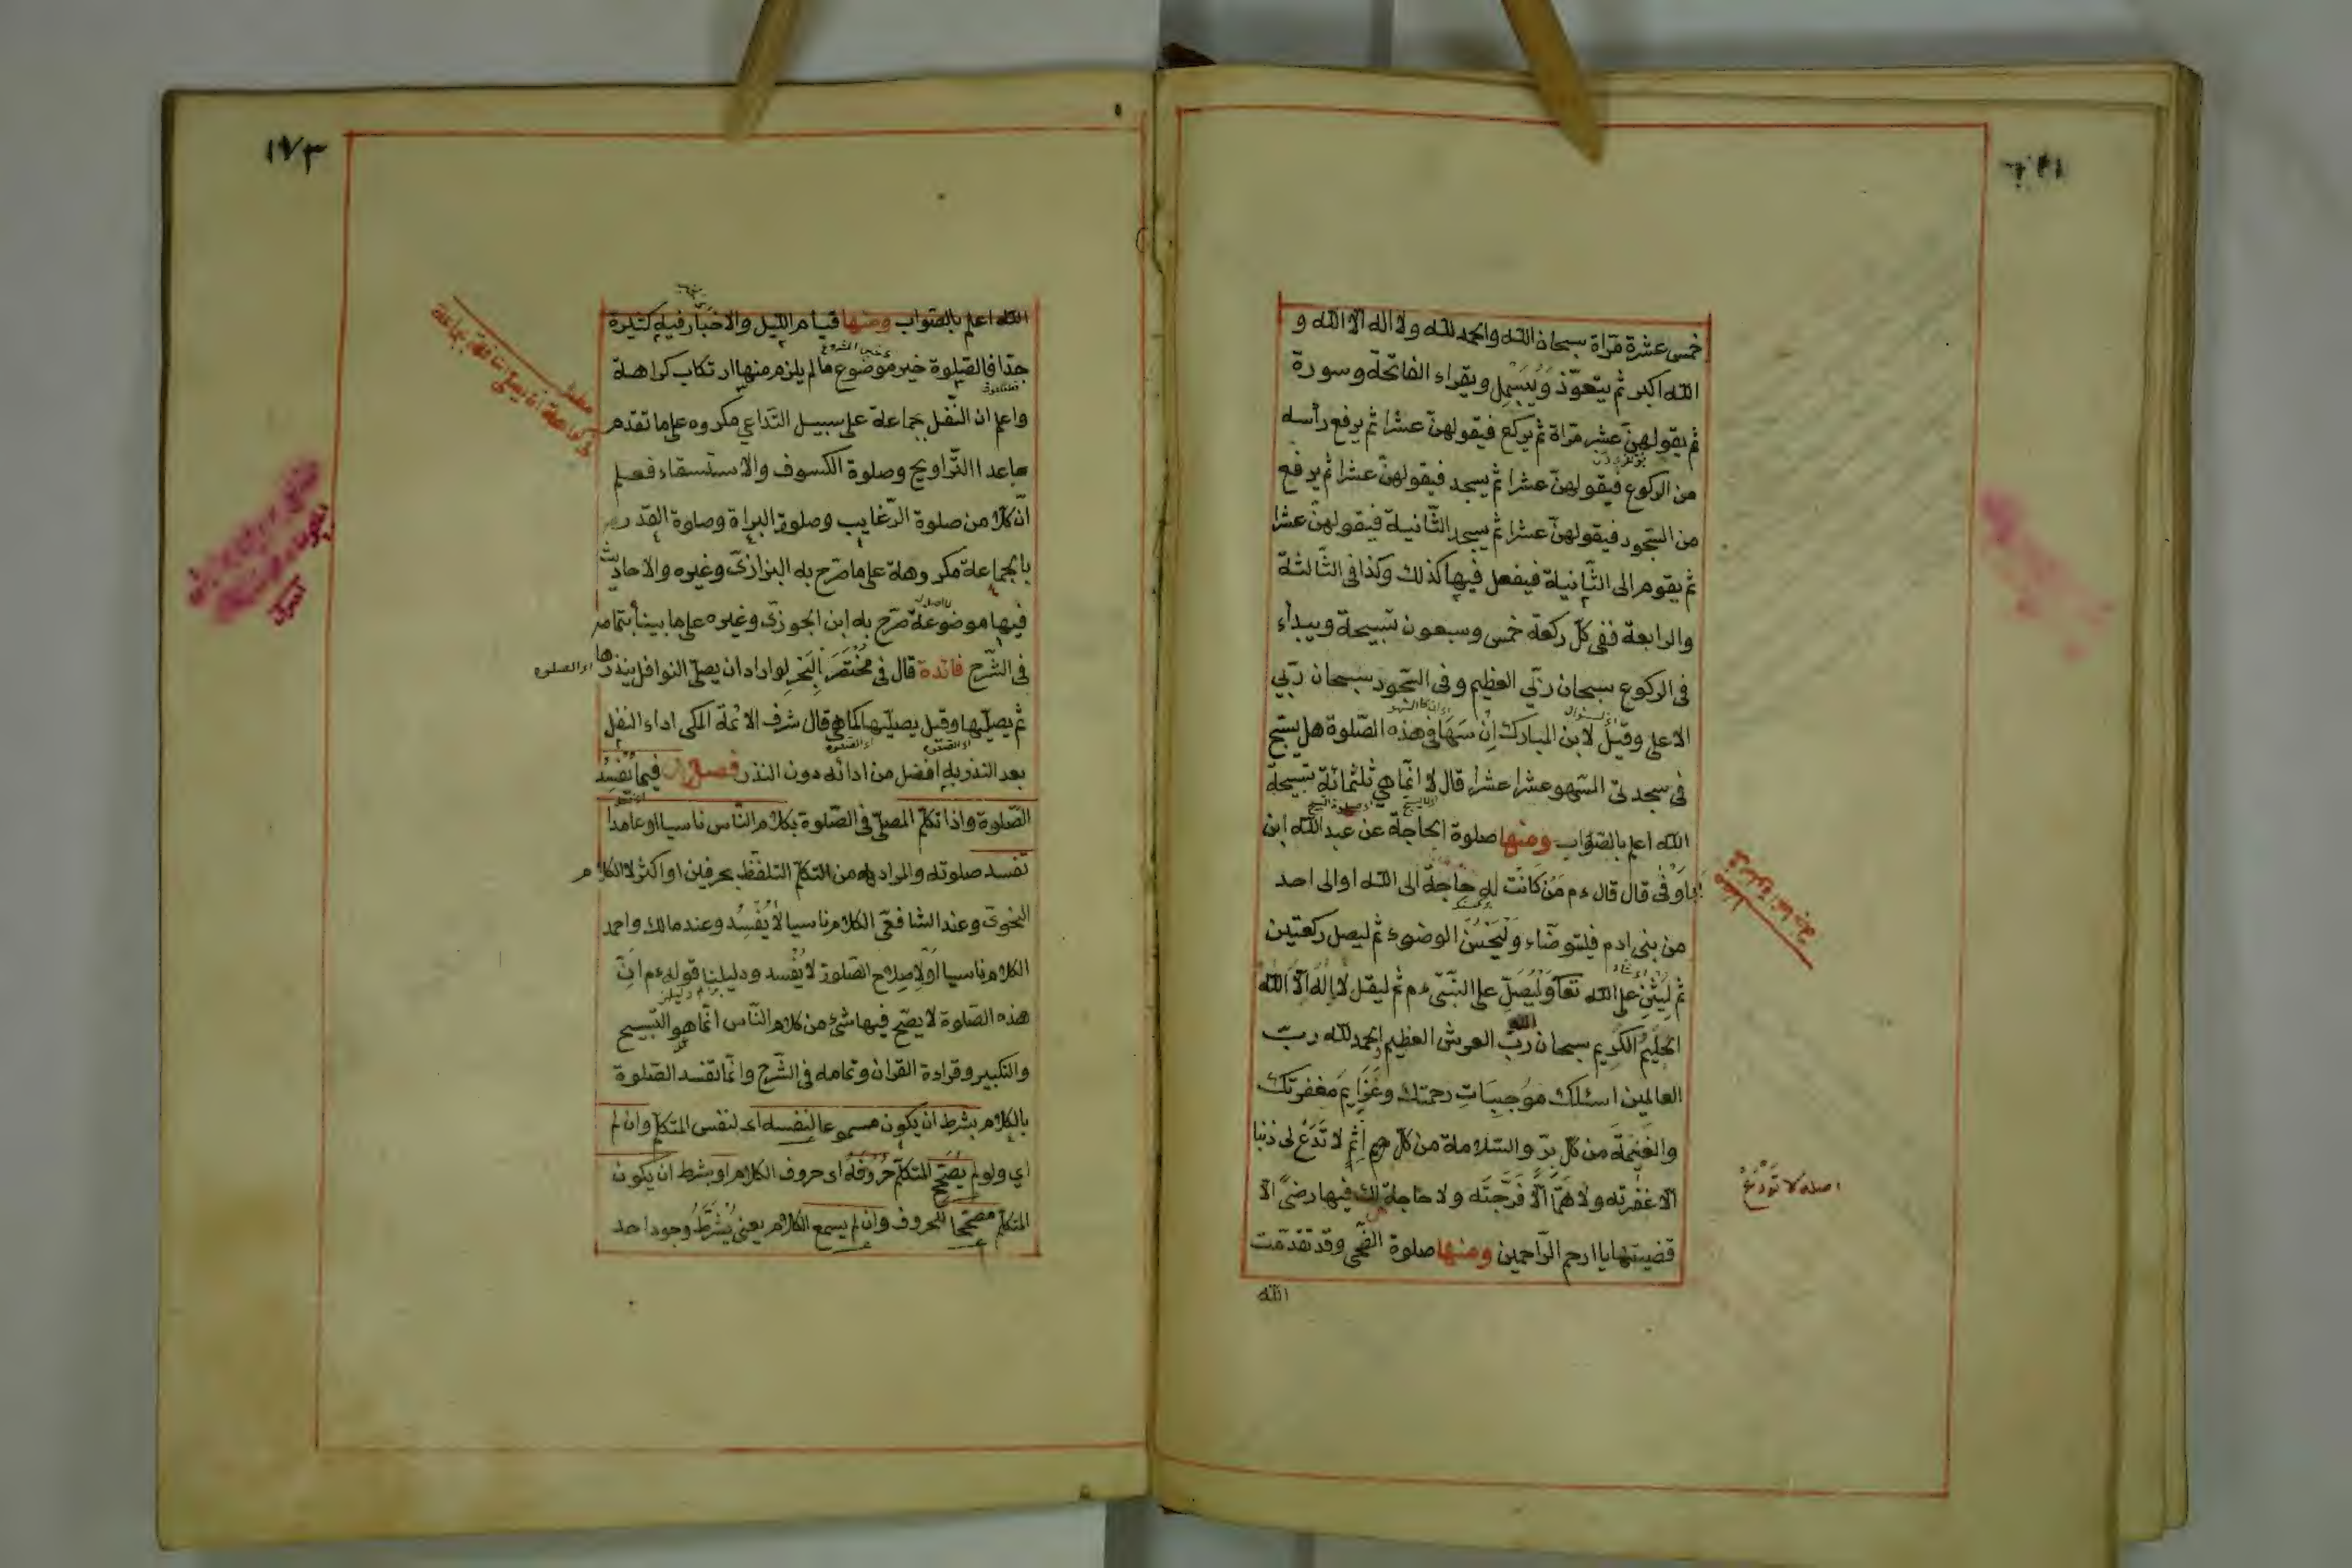 خمس عشرة مرّاة سبحان الله والحمد لله ولا اله الّا الله و
الله اكبر ثم يتعوّذ وَيُبَسْمِل ويقراء الفاتحة وسورة
ثم يقولهنّ عشر مرّاة ثم يركع فيقولهنّ عشرا ثم يرفع رأسه
من الركوع فيقولهنّ عشرا ثم يسجد فيقولهنّ عشرا ثم يرفع
من السّجود فيقولهنّ عشرا ثم يسجد الثّانية فيقولهنّ عشرا
ثم يقوم الى الثّانية فيفعل فيها كذلك وكذا فى الثّالثة
والرابعة ففى كلّ ركعة خمس وسبعون تسبيحة ويبداء
فى الركوع سبحان ربّي العظيم وفى السّجود سبحان ربّي
الاعلى وقيل لابن المبارك اِنْ سَهَا فى هذه الصّلوة هل يسبّح
فى سجدتى السّهو عشرا عشرا قال لا انّما هى ثلثمائة تسبيحة
الله اعلم بالصّواب ومنها صلوة الحاجة عن عبد الله ابن
اَبى اَوْفٰى قال قال ءم مَنْ كَانَتْ له حاجة الى الله او الى احد
من بنى ادم فليتوضّاء وَلْيُحْسِنِ الوضوء ثم ليصل ركعتين
ثم لِيُثْنِ على الله تعا وَلْيُصَلِّ على النّبىّ ءم ثم ليقل لا اِلٰهَ اِلّا الله
الحليمُ الكريم سبحان ربّ العرش العظيم الحمد لله ربّ
العالمين اسئلك مُوجِبَاتِ رحمتك وعَزَايِمَ مغفرتك
والغنيمَةَ من كل برّ والسّلامة من كل اِثْمٍ لا تَدَعْ لى ذنبا
الّا غفرته ولا هَمًّا اِلّا فرّجتَه ولا حاجة لك فيها رضىً الّا
قضيتها يا ارحم الرّاحمين ومنها صلوة الضّحى وقد تقدّمت
الله
صلوة الحاجة
اصله لا تَوْدَعْ
١٧٣
الله اعلم بالصّواب ومنها قيام الليل والاخبار فيه كثيرة
جدّا فالصّلوة خير موضوع ما لم يلزم منها ارتكاب كراهة
واعلم ان النّفل جماعة على سبيل التّداعي مكروه على ما تقدم
ماعدا التّراويح وصلوة الكسوف والاستسقاء فعلم
انّ كلّا من صلوة الرّغايب وصلوة البراة وصلوة القدر
بالجماعة مكروهة على ما صرّح به البزازىّ وغيره والاحاديث
فيها موضوعة صرّح به ابن الجوزىّ وغيره على ما بينا بتمامه
فى الشّرح فائدة قال فى مختصر البَحْر لو اراد ان يصلّى النوافل ينذرها
اء الصلوة
ثم يصلّيها وقيل يصليها كما هى قال شرف الائمة المكى اداء النفل
بعد النذر به افضل من ادائه دون النذر فصل فيما يُفْسِدُ
الصّلوة واذا تكلّم المصلّى فى الصّلوة بكلام النّاس ناسيا او عامدا
تفسد صلوته والمراد به من التكلّم التلفّظ بحرفين او اكثر لا الكلام
النحوىّ وعند الشافعىّ الكلام ناسيا لا يُفْسِدُ وعند مالك واحمد
الكلام ناسيا اَوْ لاِصلاحِ الصّلوة لا يُفْسد ودليلنا قوله ءم انّ
هذه الصّلوة لا يصحّ فيها شئ من كلام النّاس انّما هو التّسبيح
والتكبير وقراءة القران وتمامه فى الشّرح وانّما تفسد الصّلوة
بالكلام بشرط ان يكون مسموعا لنفسه اى لنفس المتكلّم وان لم
اي ولو لم يُصَحّح المتكلّم حُرُوفَهُ اى حروف الكلام او بشرط ان يكون
المتكلّم مصحّحا للحروف وان لم يسمع الكلام يعنى يُشْرَطُ وجود احد